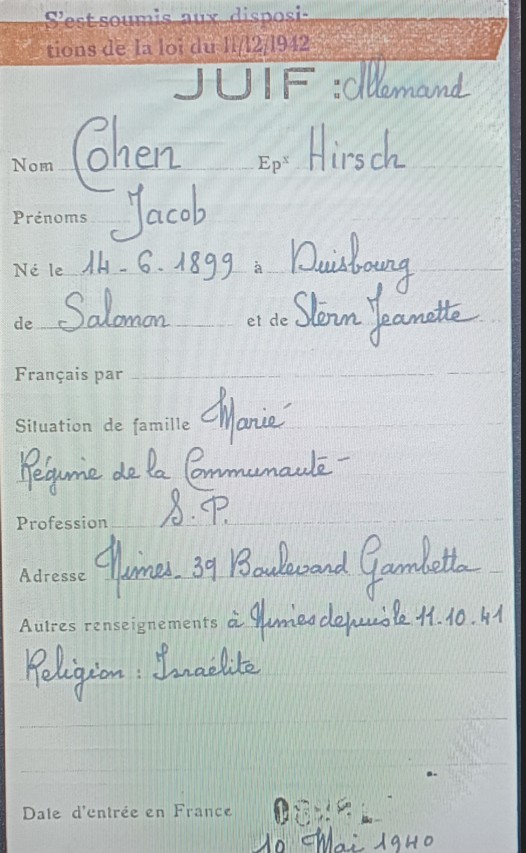 S'est soumis aux disposi-
tions de la loi du 11/12/1942
JUIF : Allemand
Nom Cohen Epx Hirsch
Prénoms Jacob
Né le 14-6.1899 à Duisbourg
de Salomon et de Stern Jeanette
Français par
Situation de famille Marié
Régime de la Communauté -
Profession S.P.
Adresse Nimes - 39 Boulevard Gambetta
Autres renseignements à Nimes depuis le 11.10.41
Religion : Israélite
Date d'entrée en France
10 Mai 1940